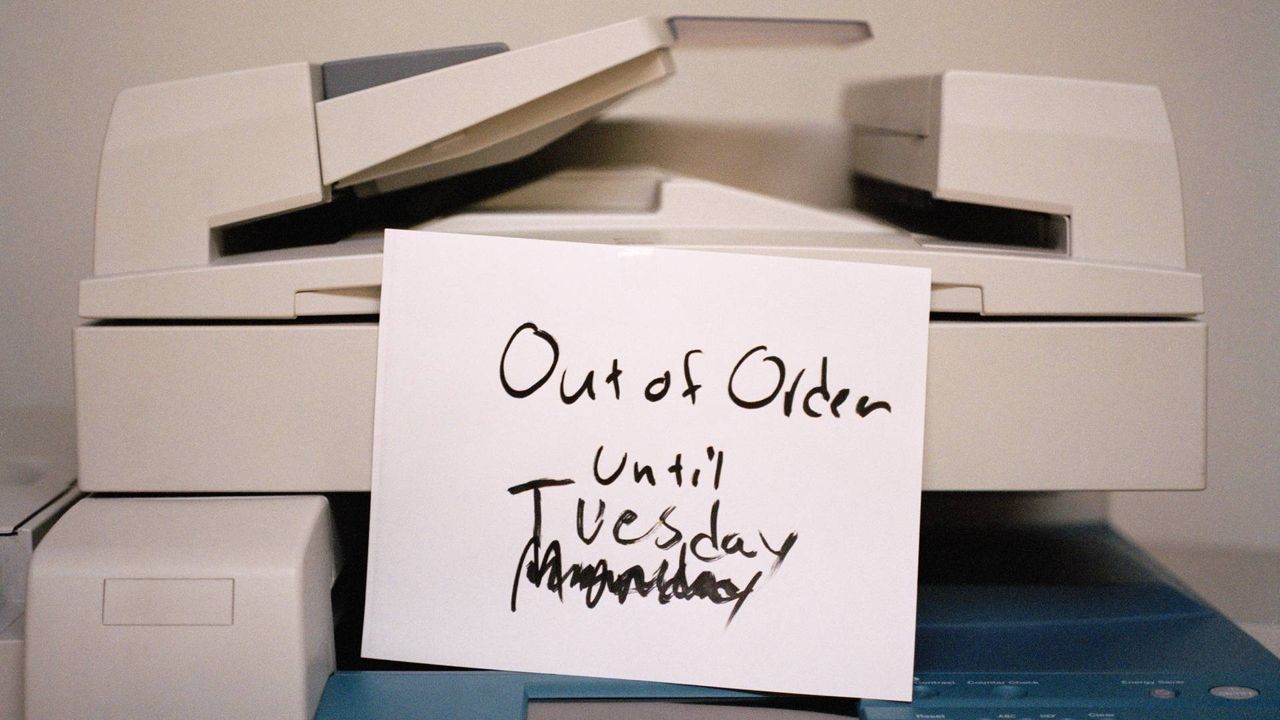 Out of Order
until
Tuesday
Contrast Counter Check Energy Saver
Reset ABC DEF Clear